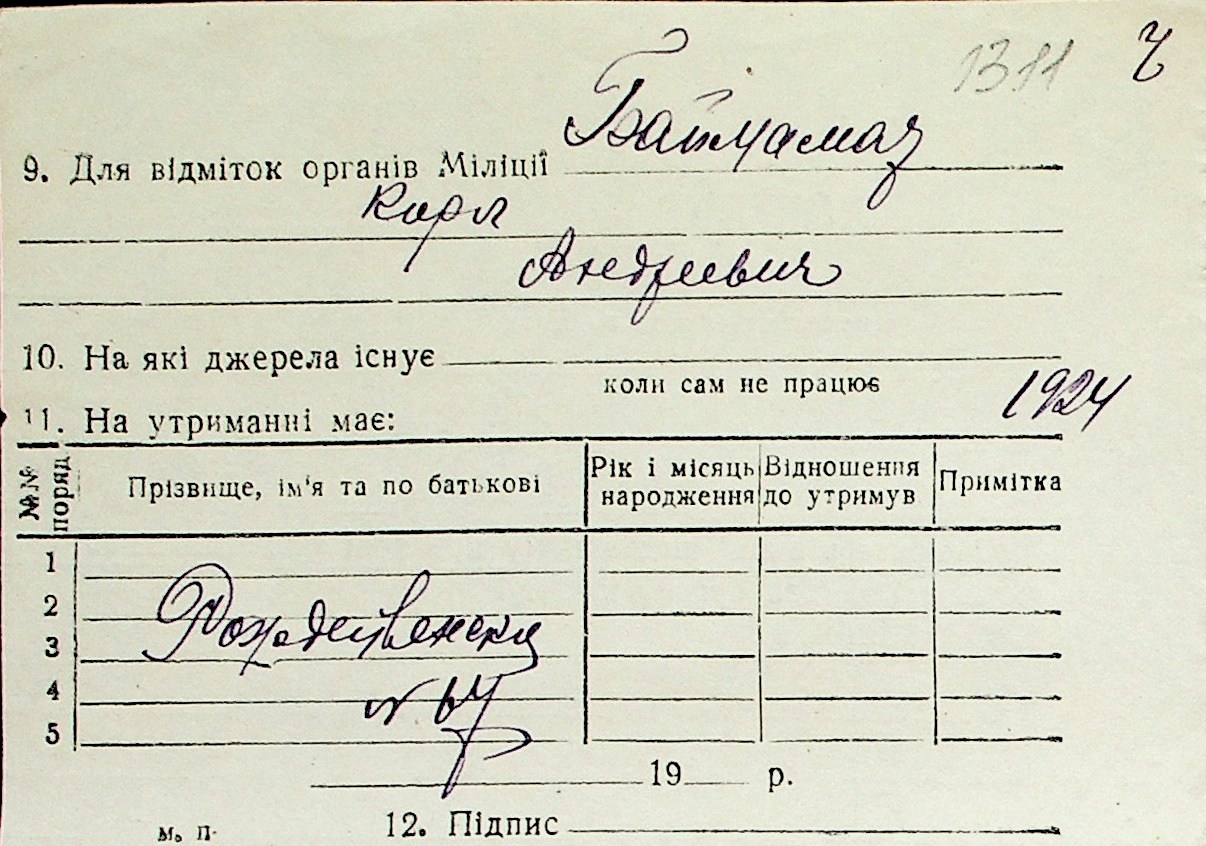 1311
9. Для відміток органів Міліції
Карл
Андреевич
10. На які джерела існує
коли сам не працює
1924
11. На утриманні має:
№№ поряд Прізвище, ім'я та по батькові Рік і місяць народження Відношення до утримув Примітка
1
2
3
4
5
19 р.
м. п. 12. Підпис